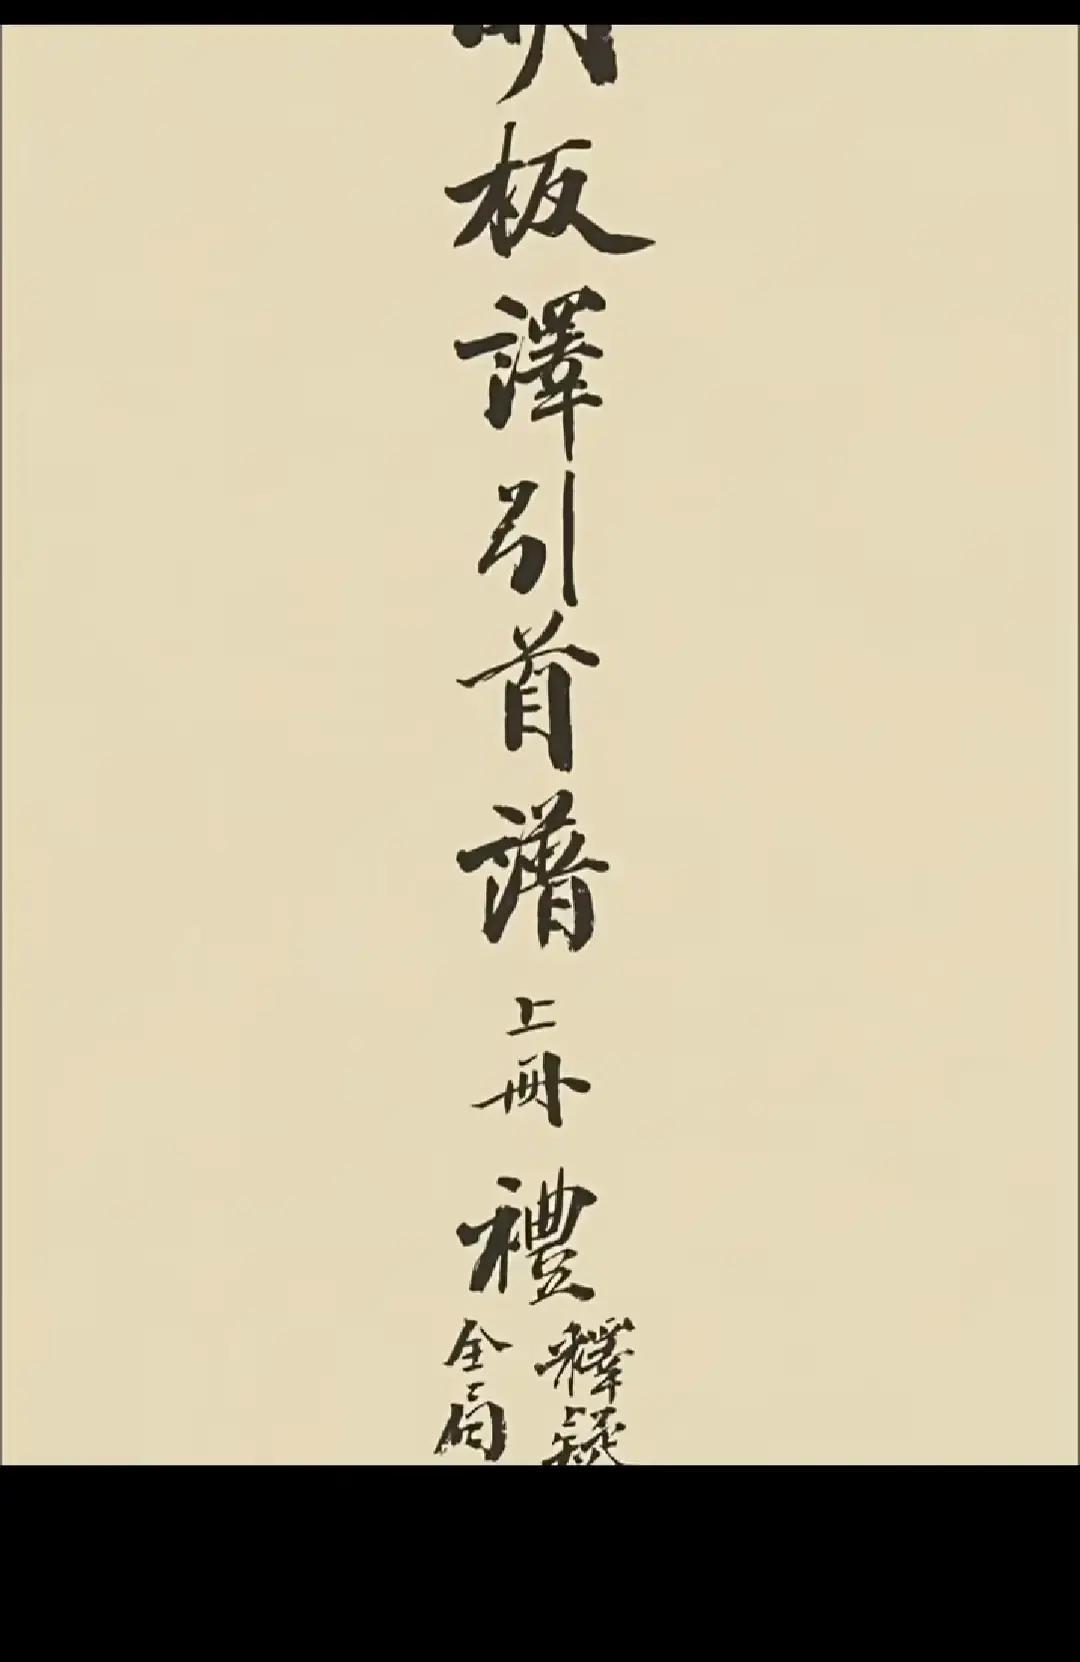 板譯引首譜 上冊 禮
釋疑
全局